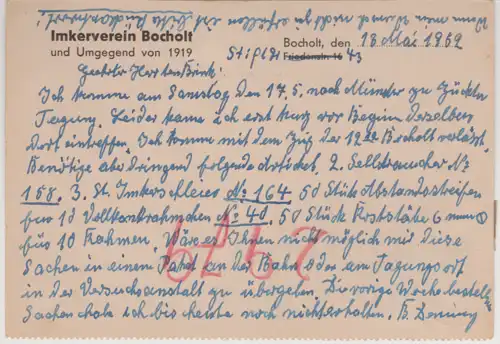 Wenn mein Wunsch nicht zu erfüllen ist, bitte Rückantwort!
Imkerverein Bocholt
und Umgegend von 1919
Bocholt, den 13 Mai 1952
Friedenstr. 16 43
Geehrter Herr ten Brink!
Ich komme am Samstag den 17.5. nach Münster zu Züchter
Tagung. Leider kann ich erst kurz vor Beginn derselben
dort eintreffen. Ich komme mit dem Zug der 12 Bocholt verlässt.
Benötige aber dringend folgende Artikel. 2. Selbstraucher No
158. 3. St. Imkerschleier No 164. 50 Stück Abstandsstreifen
für 10 Vollbaurähmchen No 4d. 50 Stück Roststäbe 6 mm
für 10 Rahmen. Wäre es Ihnen nicht möglich mir diese
Sachen in einem Paket an der Bahn oder am Tagungsort
in der Versuchsanstalt zu übergeben. Die vorige Woche bestellten
Sachen habe ich bis heute noch nicht erhalten. B.